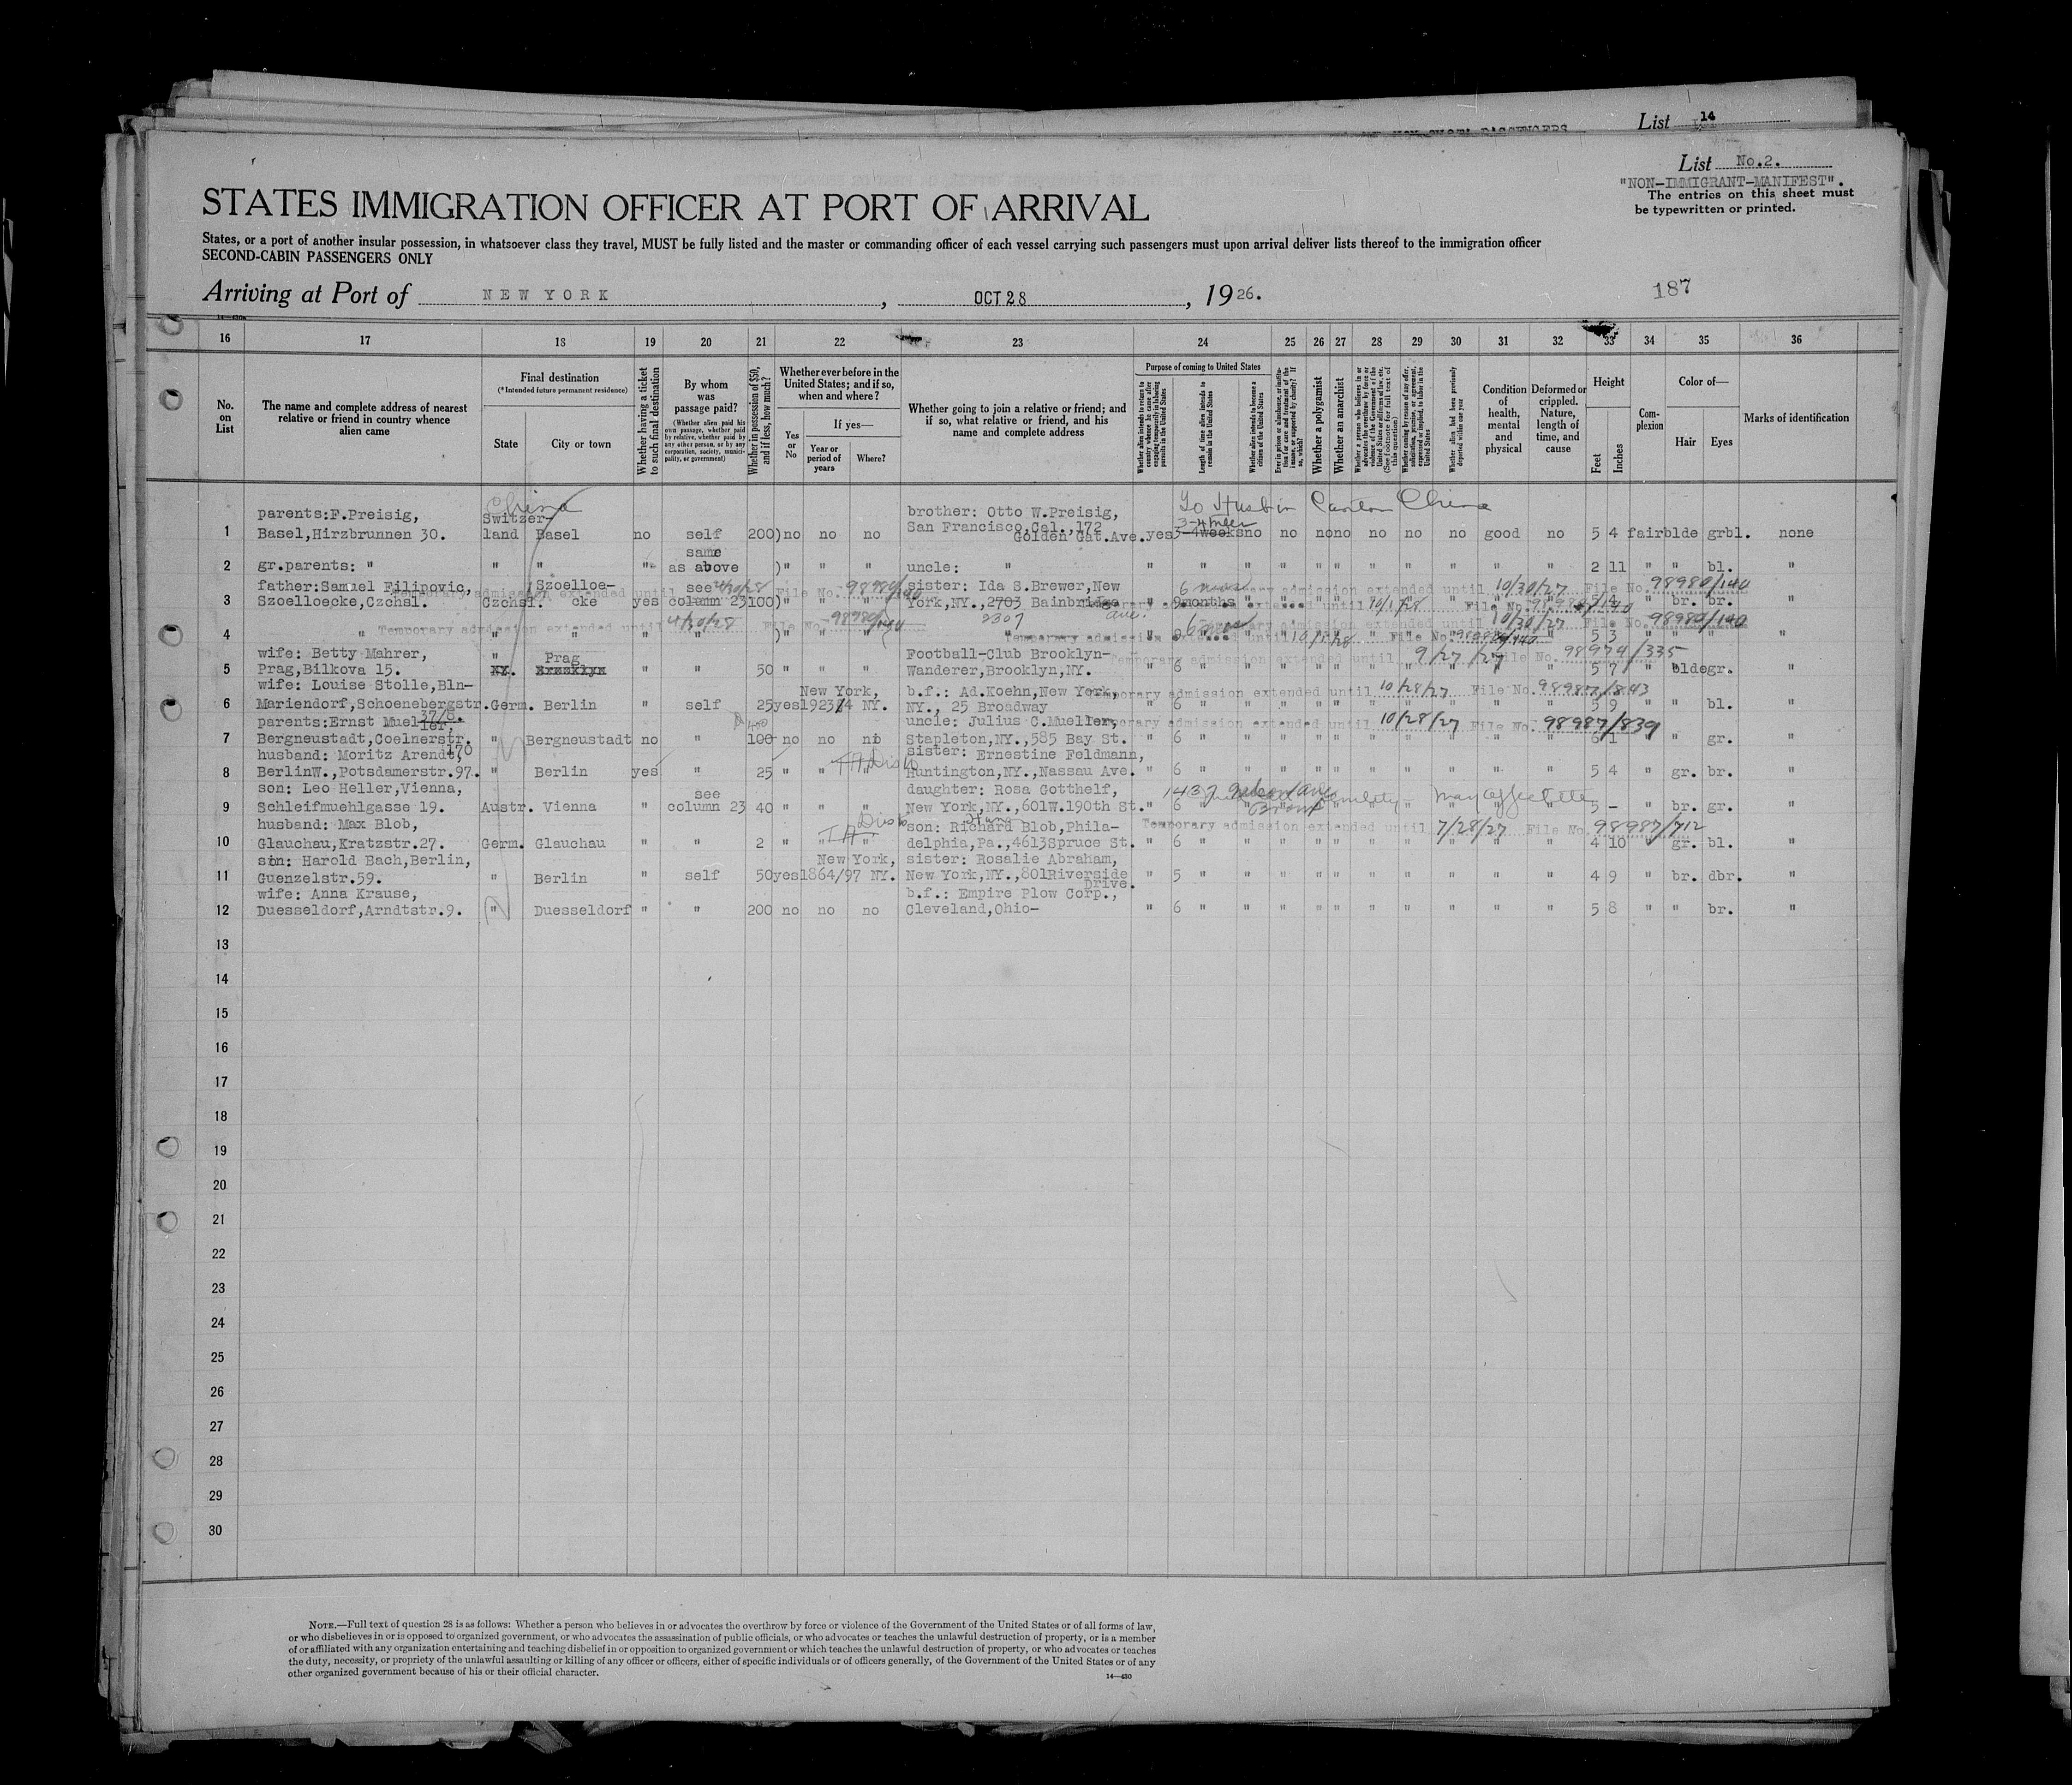 List 14
List No.2.
"NON-IMMIGRANT-MANIFEST".
The entries on this sheet must
be typewritten or printed.
STATES IMMIGRATION OFFICER AT PORT OF ARRIVAL
States, or a port of another insular possession, in whatsoever class they travel, MUST be fully listed and the master or commanding officer of each vessel carrying such passengers must upon arrival deliver lists thereof to the immigration officer
SECOND-CABIN PASSENGERS ONLY
Arriving at Port of NEW YORK, OCT 28, 1926.
187
16 17 18 19 20 21 22 23 24 25 26 27 28 29 30 31 32 33 34 35 36
No. on List
The name and complete address of nearest relative or friend in country whence alien came
Final destination
(*Intended future permanent residence)
State
City or town
Whether having a ticket to such final destination
By whom was passage paid?
(Whether alien paid his own passage, whether paid by relative, whether paid by any other person, or by any corporation, society, municipality, or government)
Whether in possession of $50, and if less, how much?
Whether ever before in the United States; and if so, when and where?
Yes or No
If yes—
Year or period of years
Where?
Whether going to join a relative or friend; and if so, what relative or friend, and his name and complete address
Purpose of coming to United States
Whether alien intends to return to country whence he came after engaging temporarily in laboring pursuits in the United States
Length of time alien intends to remain in the United States
Whether alien intends to become a citizen of the United States
Whether a polygamist
Whether an anarchist
Condition of health, mental and physical
Deformed or crippled. Nature, length of time, and cause
Height
Feet
Inches
Complexion
Color of—
Hair
Eyes
Marks of identification
China
To Husb in Canton China
parents:F.Preisig, Switzer- brother: Otto W.Preisig,
San Francisco,Cal.,172
1 Basel,Hirzbrunnen 30. land Basel no self 200) no no no Golden Gat.Ave. yes 3-4weeks no no no no no no no good no 5 4 fair blde grbl. none
same
2 gr.parents: " " " " as above )" " " uncle: " " " 2 11 " " bl. "
father:Samuel Filipovic, Szoelloe- see sister: Ida S.Brewer,New
Temporary admission extended until 10/30/27 File No. 98980/140
3 Szoelloecke,Czchsl. Czchsl. cke yes column 23 100) " " " York,NY.,2703 Bainbridge " 9months " " br. br. "
2307 ave.
Temporary admission extended until 4/30/28 File No. 98980/140
10/30/27 File No. 98980/140
4 " " " " " )" " " " 5 3 " " " "
wife: Betty Mahrer, " Prag Football-Club Brooklyn-
Temporary admission extended until 9/27/27 File No. 98974/335
5 Prag,Bilkova 15. NY. Brooklyn " " 50 " " " Wanderer,Brooklyn,NY. " 6 " " 5 7 " blde gr. "
wife: Louise Stolle,Bln- New York, b.f.: Ad.Koehn,New York,
Temporary admission extended until 10/28/27 File No. 98987/843
6 Mariendorf,Schoenebergstr. Germ. Berlin " self 25 yes 1923/4 NY. NY., 25 Broadway 5 9 " " bl. "
37/8.
parents:Ernst Mueller, 400 uncle: Julius C.Mueller,
Temporary admission extended until 10/28/27 File No. 98987/839
7 Bergneustadt,Coelnerstr. " Bergneustadt no " 100 no no no Stapleton,NY.,585 Bay St. " 6 " " 6 1 " " gr. "
170
husband: Moritz Arendt, sister: Ernestine Feldmann,
8 BerlinW.,Potsdamerstr.97. Berlin yes " 25 " " " Huntington,NY.,Nassau Ave. " 6 " " 5 4 " gr. br. "
son: Leo Heller,Vienna, see daughter: Rosa Gotthelf,
1437 Bronx
9 Schleifmuehlgasse 19. Austr. Vienna " column 23 40 " " " New York,NY.,601W.190th St. " 6 " " 5 – br. gr. "
husband: Max Blob, son: Richard Blob,Phila-
Temporary admission extended until 7/28/27 File No. 98987/712
10 Glauchau,Kratzstr.27. Germ. Glauchau " " 2 " " " delphia,Pa.,4613Spruce St. " 6 " " 4 10 " gr. bl. "
son: Harold Bach,Berlin, New York, sister: Rosalie Abraham,
11 Guenzelstr.59. " Berlin " self 50 yes 1864/97 NY. New York,NY.,801Riverside " 5 " " 4 9 " br. dbr. "
Drive.
wife: Anna Krause, b.f.: Empire Plow Corp.,
12 Duesseldorf,Arndtstr.9. " Duesseldorf " " 200 no no no Cleveland,Ohio- " 6 " " 5 8 " " br. "
13
14
15
16
17
18
19
20
21
22
23
24
25
26
27
28
29
30
NOTE.—Full text of question 28 is as follows: Whether a person who believes in or advocates the overthrow by force or violence of the Government of the United States or of all forms of law,
or who disbelieves in or is opposed to organized government, or who advocates the assassination of public officials, or who advocates or teaches the unlawful destruction of property, or is a member
of or affiliated with any organization entertaining and teaching disbelief in or opposition to organized government or which teaches the unlawful destruction of property, or who advocates or teaches
the duty, necessity, or propriety of the unlawful assaulting or killing of any officer or officers, either of specific individuals or of officers generally, of the Government of the United States or of any
other organized government because of his or their official character.
14—430